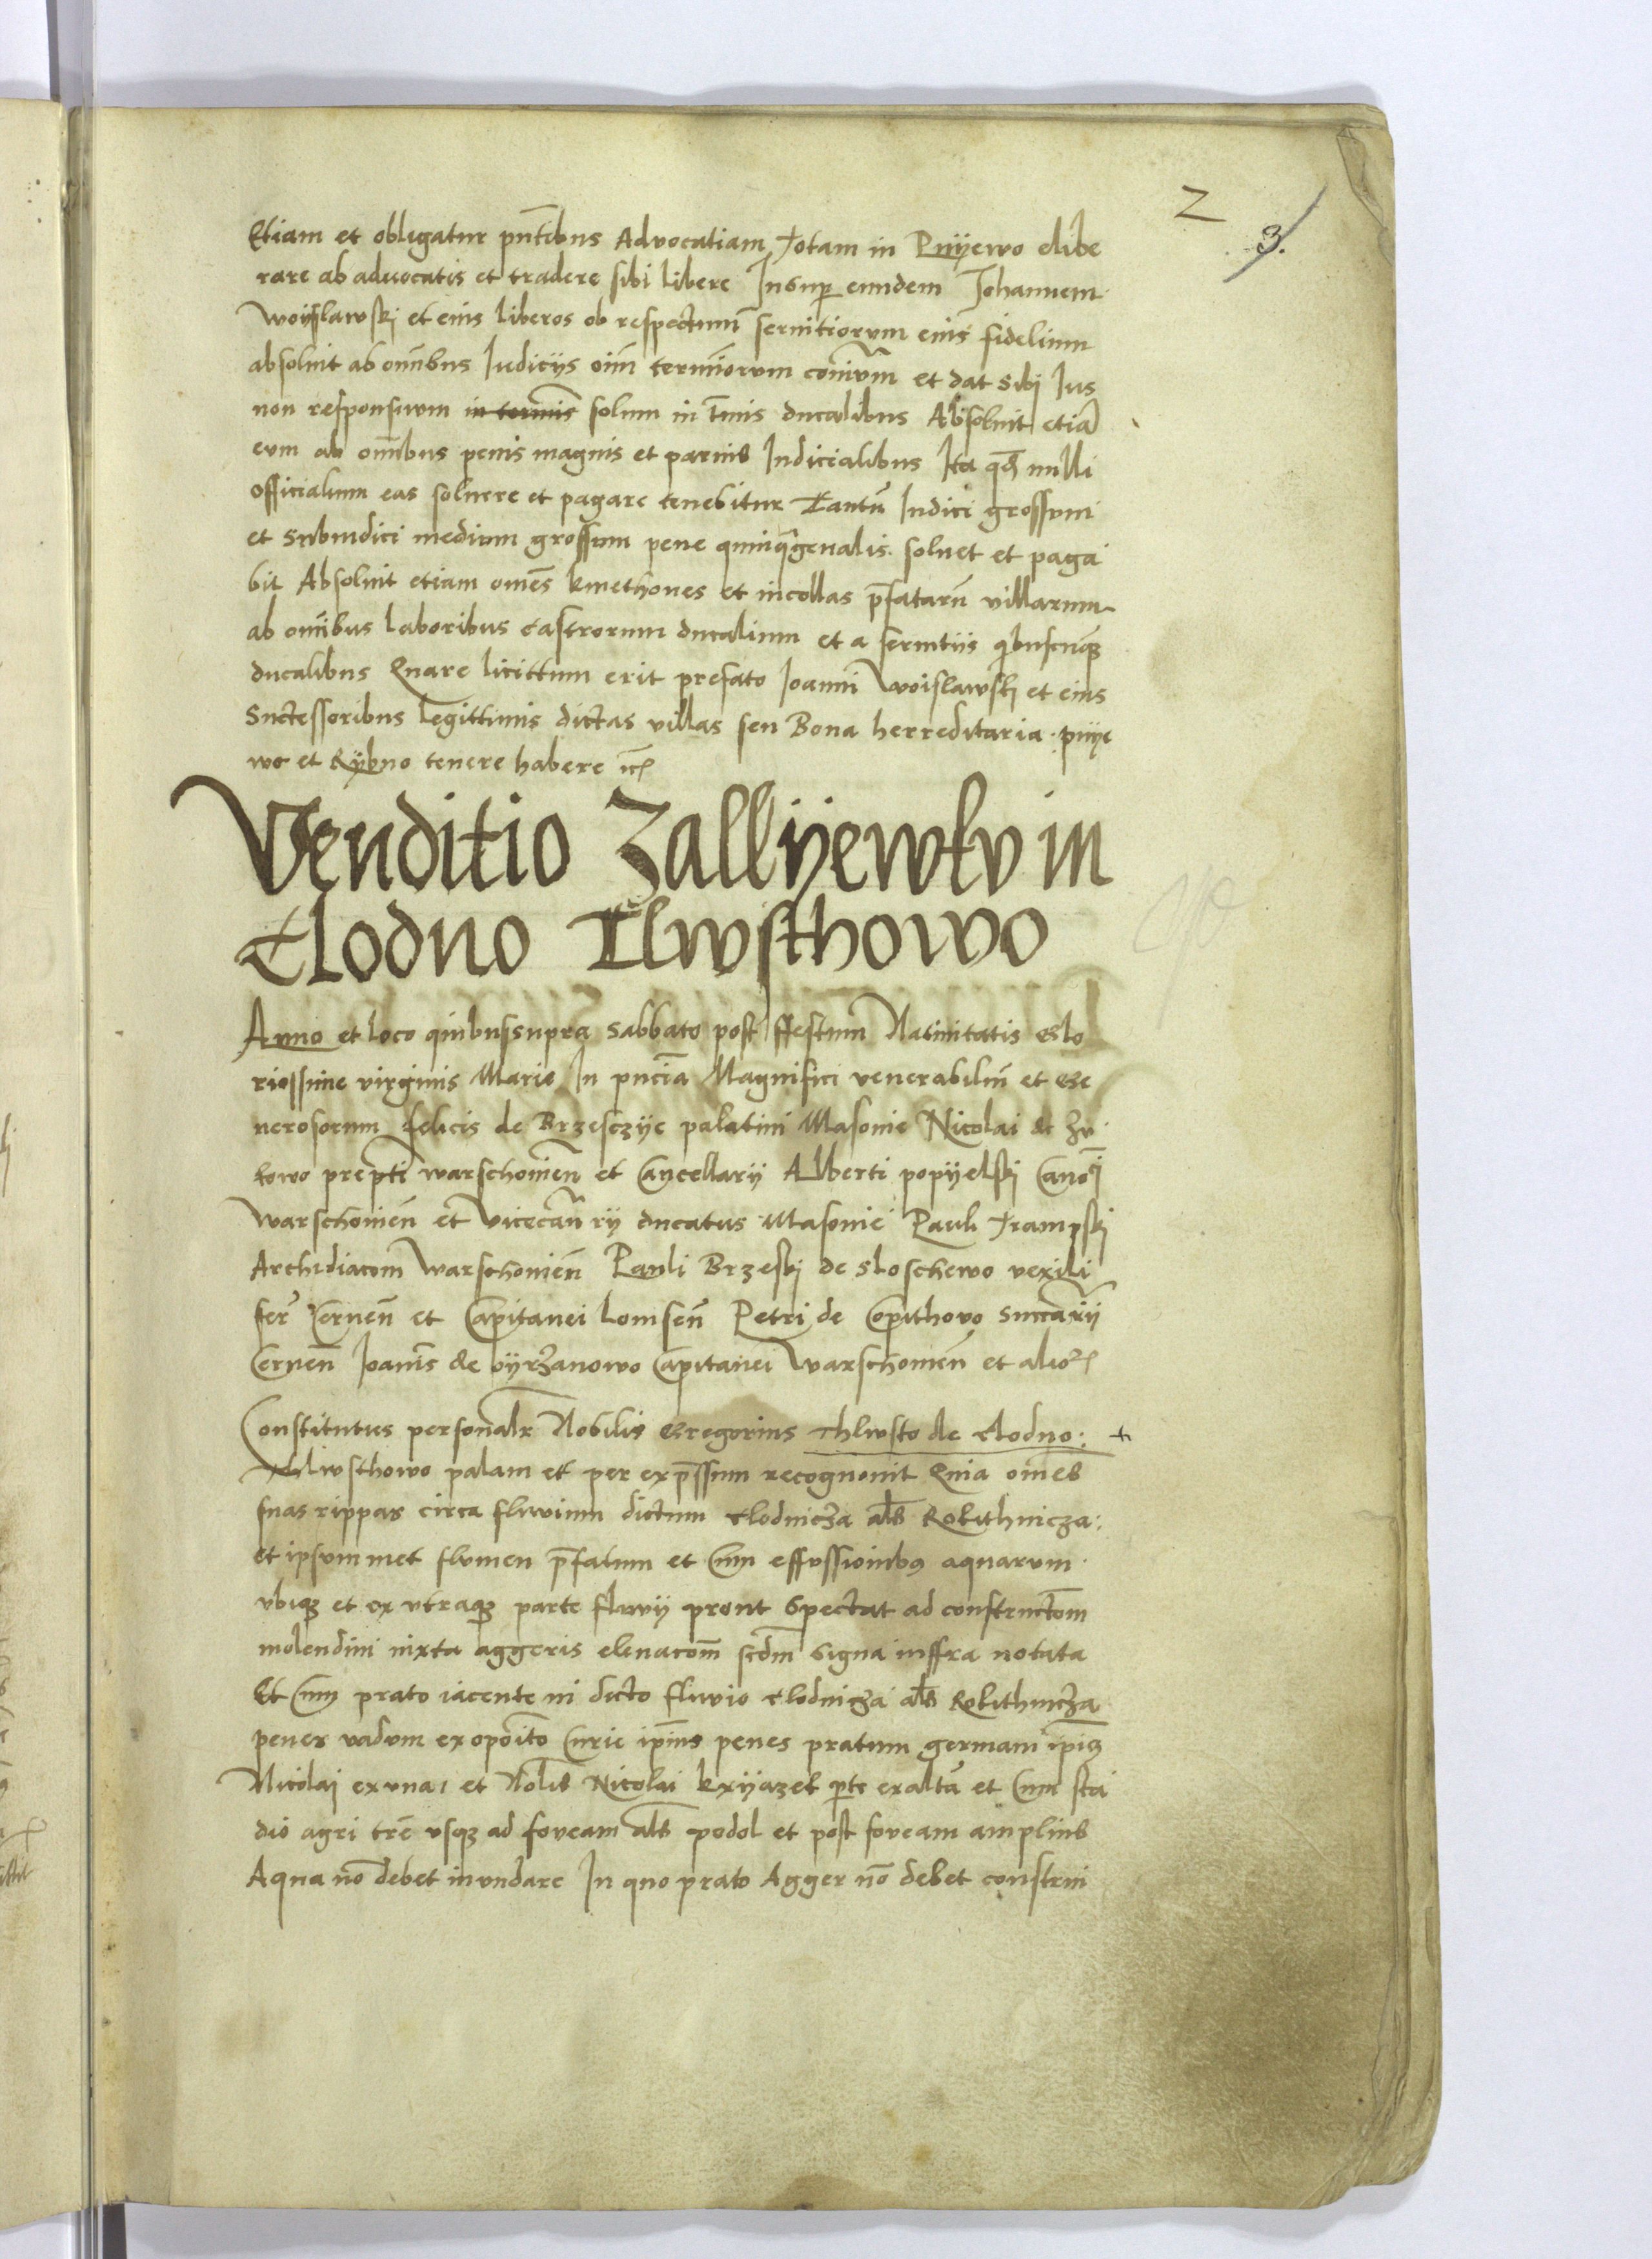 2
3.
Etiam et obligatur pn̄tibus Advocatiam totam in Pnyewo elibe
rare ab aduocatis et tradere sibi libere Insup eundem Johannem
Woyslawskj et eius liberos ob respectum seruitiorum eius fidelium
absoluit ab om̄ibus Iudicijs oim̄ terminorum com̄vm et dat sibj Ius
non responsiuum in termis solum in t̄mis ducalibus Absoluit etiā
eum ab om̄ibus penis magnis et paruis Iudicialibus Ita qd nulli
officialium eas soluere et pagare tenebitur Tantū Iudici grossum
et Subiudici medium grossum pene quinqgenalis soluet et paga
bit Absoluit etiam omēs kmethones et incollas p̄fatarū villarum
ab om̄ibus laboribus castrorum ducalium et a seruitiis qbuscūq
ducalibus Quare licittum erit prefato Ioanni Woislawskj et eius
Successoribus legittimis dictas villas seu Bona herreditaria pnye
wo et Rybno tenere habere etc
Venditio Zallyewkv in
Clodno Tlwsthowo
Anno et loco quibussupra Sabbato post ffestum Natiuitatis Glo
riossime virginis Marie In pn̄cia Magnifici venerabiliū et Ge
nerosorum felicis de Brzesczye palatini Masouie Nicolai de Zu
kowo prepti warschouien̄ et Cancellarij Alberti popyelskj Canoj
warschouien̄ et vicecan̄rij ducatus Masouie Pauli trampskj
Archidiaconi Warschouien̄ Pauli Brzeskj de Sloschewo vexilli
ferj Cernen̄ et Capitanei lomsen̄ Petri de Copithovo Succarij
Cernen̄ Ioanis de vyrzanowo Capitanei Warschouien̄ et alior
Constitutus personalr Nobilis Gregorius thlwsto de clodno: +
thlwsthowo palam et per exp̄ssum recognouit Quia omēs
suas rippas circa fluvium dictum clodnicza als Rokithnicza:
et ipsum met flumen p̄fatum et Cum effussioinbus aquarum
vbiq et ex vtraq parte fluvij prout Spectat ad constructom
molendini iuxta aggeris eleuacom̄ scdm signa inffra notata
Et Cum prato iacente in dicto fluvio clodnicza als Rokithnicza
penes vadum ex opoito Curie ipius penes pratum germani ipius
Nicolai ex vna et Nobilis Nicolai kxyazek pte ex altā et Cum sta
dio agri trē vsq ad foveam als podol et post foveam amplius
Aqua nō debet invndare In quo prato Agger nō debet construi